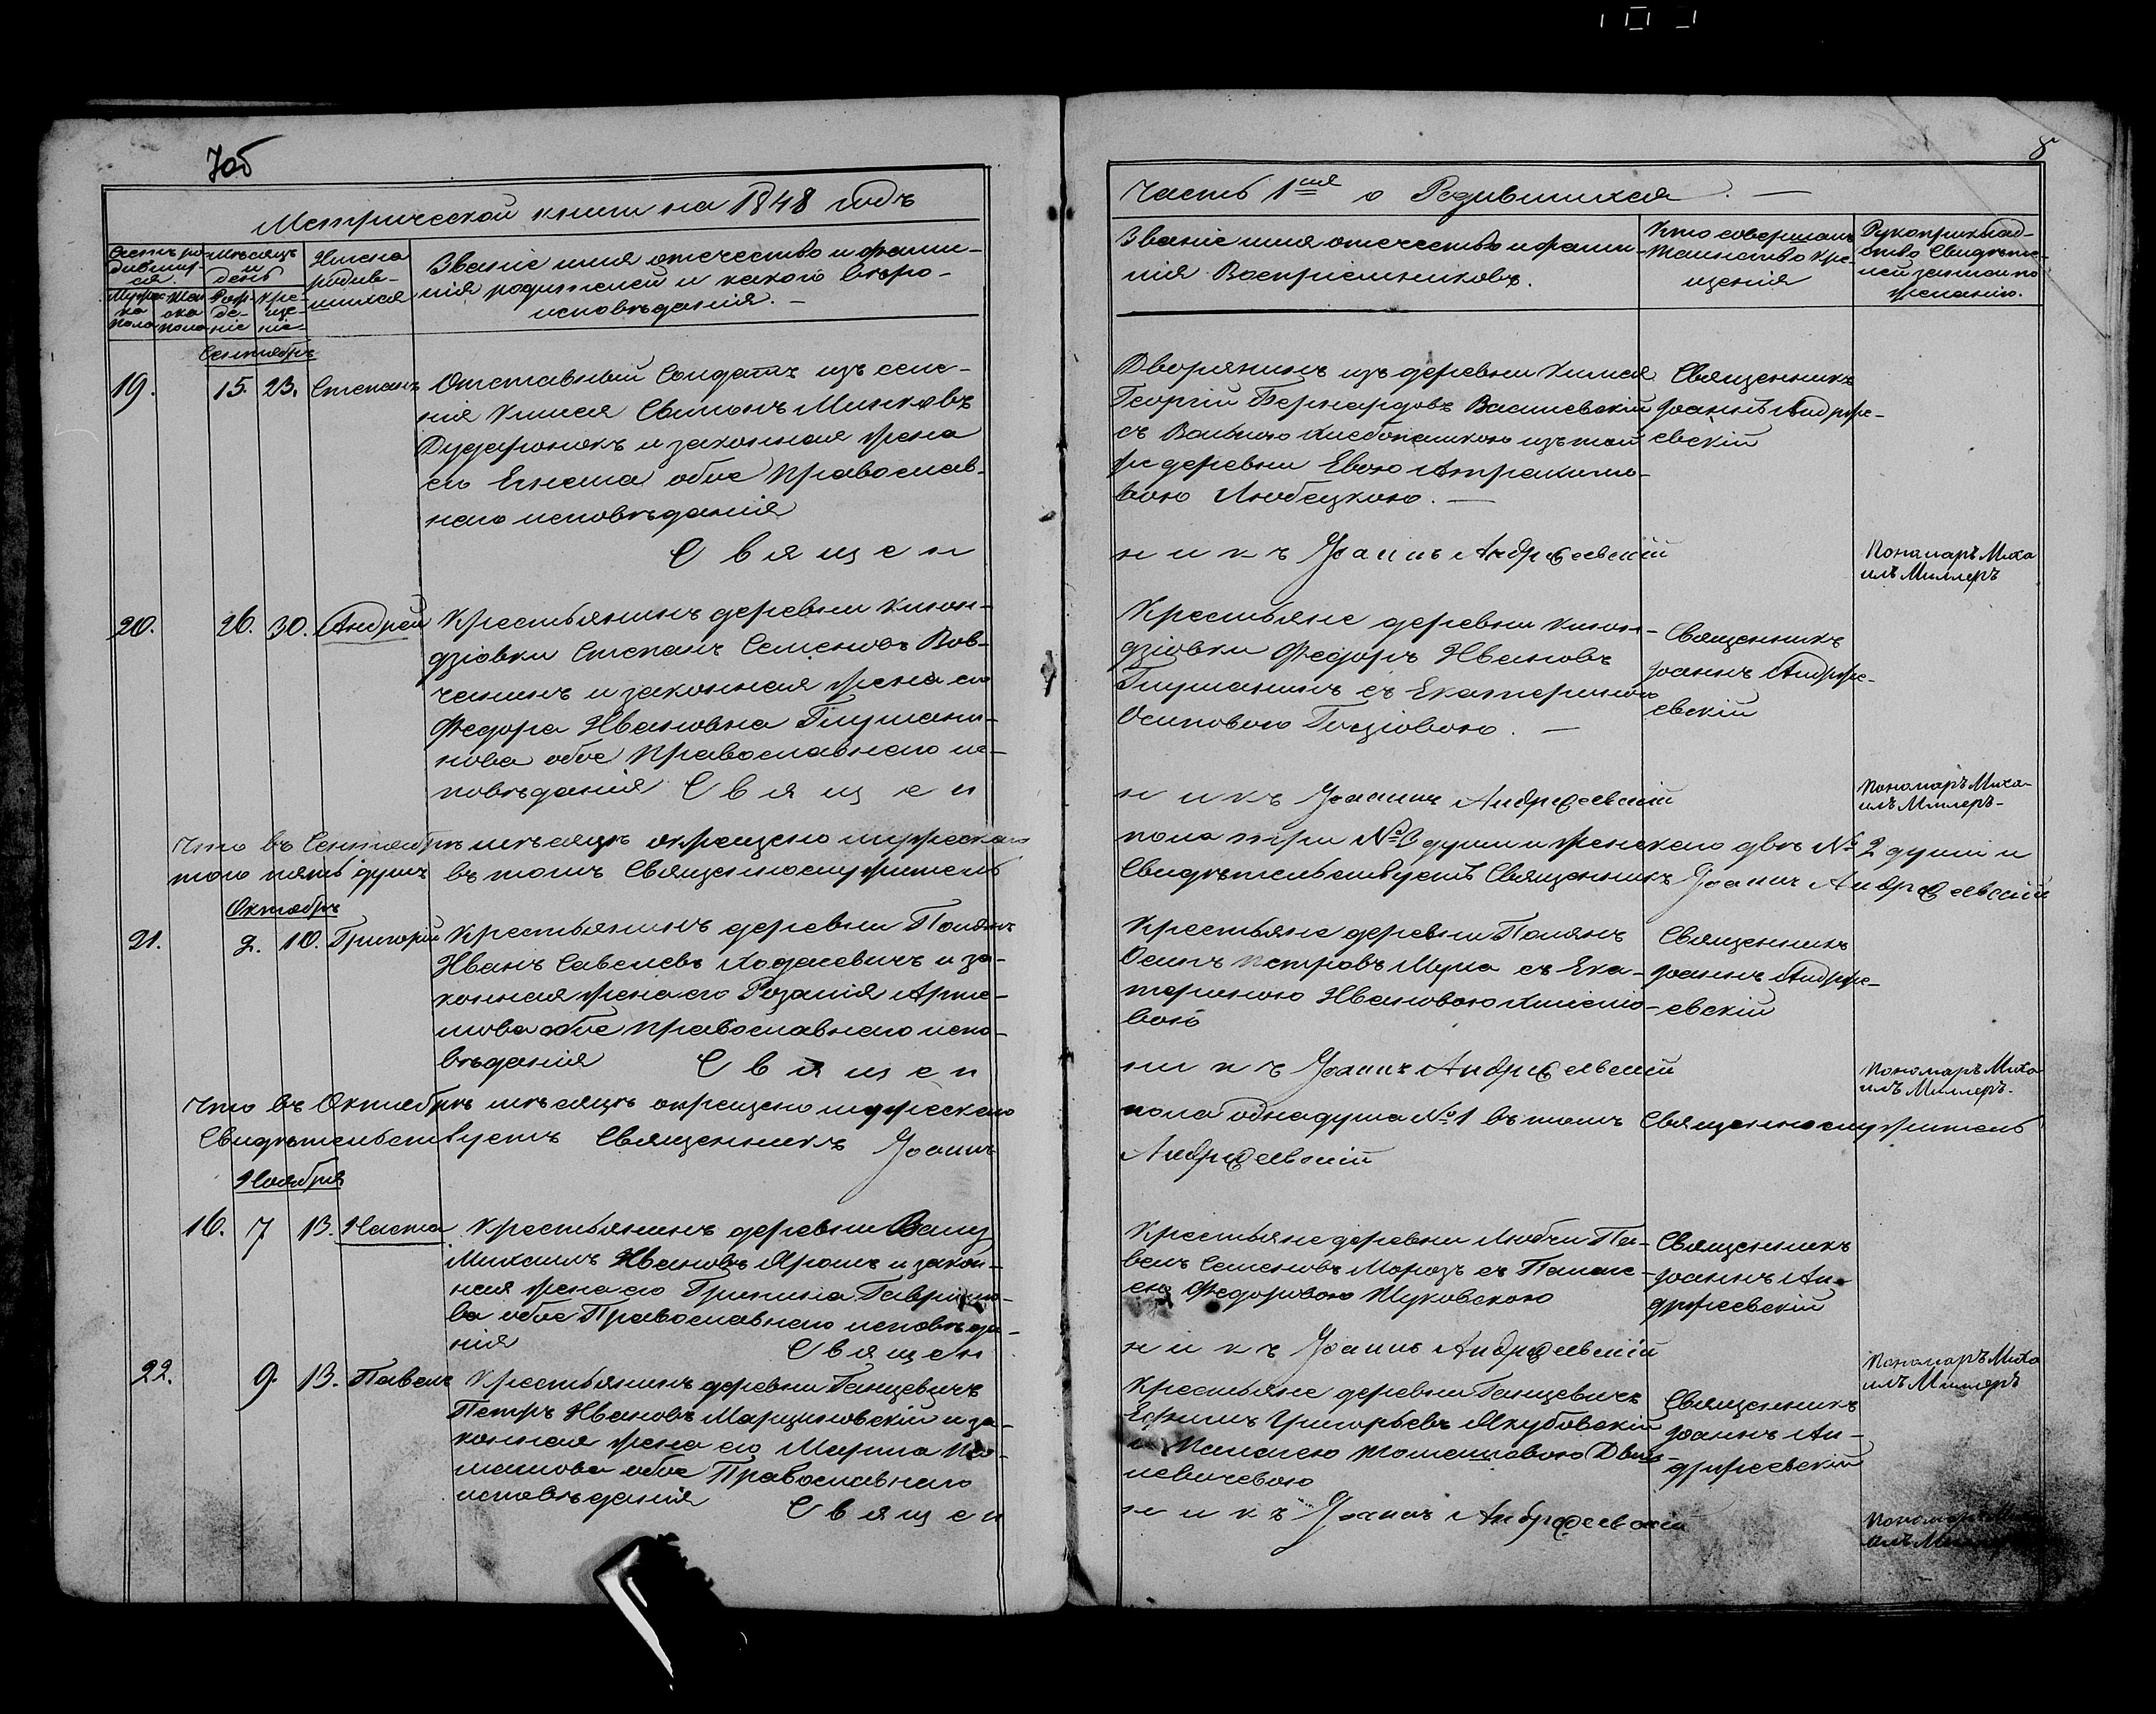 7об
Метрической книги на 1848 годъ
Счетъ ро-
дивших-
ся.
Мѣсяцъ
и
день
Имена
родив-
шихся
Званіе имя отечество и фами-
лія родителей и какого вѣро-
исповѣданія. —
Мужес-
ка
пола
Жен
ска
пола
Рож
де-
ніе
Кре-
ще-
ніе
Сентябрь
19. 15. 23. Степанъ Отставный Солдатъ изъ селе-
нія Хмеля
и законная жена
его обое Православ-
наго исповѣданія
Священ
20. 26. 30. Андрей Крестьянинъ деревни
Степанъ Семеновъ Вов-
чанинъ и законная жена его
Федора Ивановна
нова обое Православнаго ис-
повѣданія Священ
Что въ Сентябрѣ мѣсяцѣ окрещено мужескаго
того пять душъ въ томъ Священнослужитель
Октябрь
21. 2. 10. Григорій Крестьянинъ деревни Полянъ
Иванъ Савелевъ Ходасевичъ и за-
конная жена его Розалія
обое Православнаго испо-
вѣданія Священ
Что въ Октябрѣ мѣсяцѣ окрещено мужескаго
Свидѣтельствуетъ Священникъ Іоаннъ
Ноября
16. 7 13. Наста Крестьянинъ деревни
Михаилъ Ивановъ Ярошъ и закон-
ная жена его
обое Православнаго исповѣда-
нія Священ
22. 9. 13. Павелъ Крестьянинъ деревни Ганцевичъ
Петръ Ивановъ Марциновскій и за-
конная жена его Марина
обое Православнаго
исповѣданія Священ
8
Часть 1ая о Родившихся. —
Званіе имя отечество и фами-
лія Воспріемниковъ.
Кто совершалъ
Таинство Кре-
щенія
Рукоприклад-
ство Свидѣте-
лей записи по
желанію.
Дворянинъ изъ деревни Хмеля
Георгій Бернардовъ Василевскій
съ Вольною Хлебопашкою изъ той
же деревни Евою
Любецкою. —
Священникъ
Іоаннъ Андрже-
евскій
никъ Іоаннъ Андржеевскій
Пономаръ Миха
илъ Миллеръ
Крестьяне деревни
Федоръ Ивановъ
съ Екатериною
Осиповою —
Священникъ
Іоаннъ Андрже-
евскій
никъ Іоаннъ Андржеевскій
Пономаръ Миха-
илъ Миллеръ-
пола три №3 души и женскаго двѣ №2 души и
Свидѣтельствуетъ Священникъ Іоаннъ Андржеевскій
Крестьяне деревни Полянъ
Осипъ Петровъ Муха съ Ека-
териною Ивановою
вою
Священникъ
Іоаннъ Андрже-
евскій
никъ Іоаннъ Андржеевскій
Пономаръ Миха
илъ Миллеръ-
пола одна душа №1 въ томъ Священнослужитель
Андржеевскій
Крестьяне деревни Любчи Па-
велъ Семеновъ Морозъ съ Пелаге-
ею Федоровою Жуковскою
Священникъ
Іоаннъ Ан-
држеевскій
никъ Іоаннъ Андржеевскій
Пономаръ Миха
илъ Миллеръ
Крестьяне деревни Ганцевичъ
Ефимъ Григорьевъ Якубовскій
Пелагею
Священникъ
Іоаннъ Ан-
држеевскій
никъ Іоаннъ Андржеевскій
Пономаръ